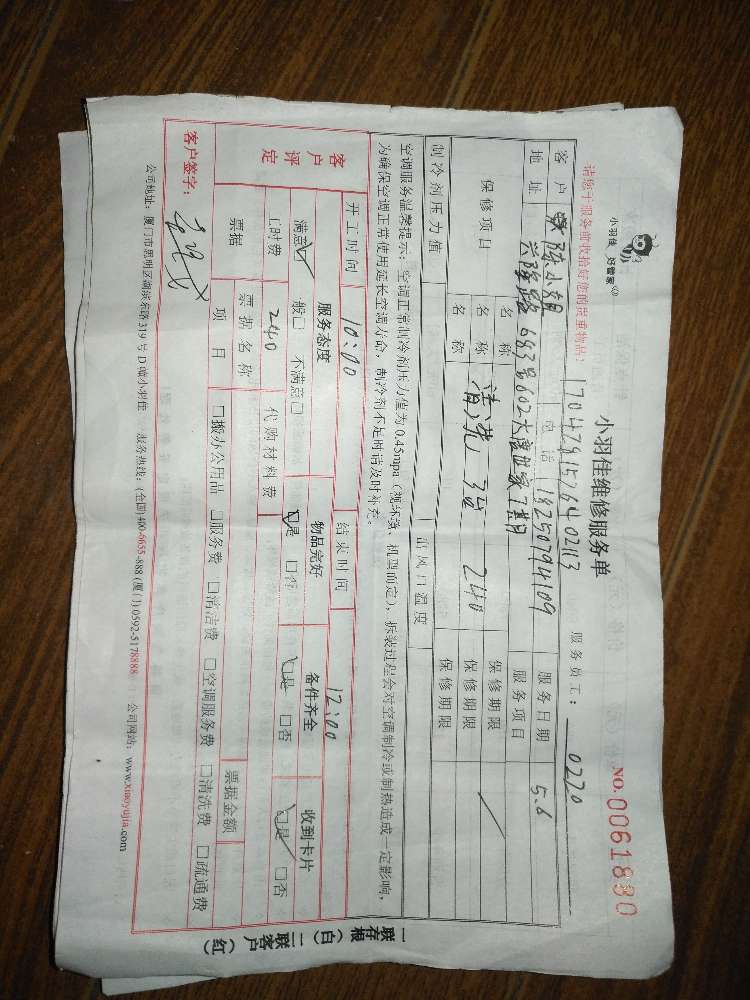 小羽佳 好管家
小羽佳维修服务单
NO.0061880
请您于服务前收拾好您的贵重物品!
1704291576402113
服务员工: 0270
客户 陈小姐 电话 18250794109 服务日期 5.6
地址 兴隆路683号602大唐世家7期 服务项目
保修项目 名称 保修期限
名称 清洗 240 保修期限
名称 保修期限
制冷剂压力值 出风口温度
空调服务温馨提示:空调正常制冷剂压力值为0.45mpa(视环境、机型而定),拆装过程会对空调制冷或制热造成一定影响,
为确保空调正常使用延长空调寿命,制冷剂不足时请及时补充。
开工时间 10:00 结束时间 12:00
客户评定 服务态度 物品完好 备件齐全 收到卡片
满意☑ 一般□ 不满意□ ☑是 □否 ☑是 □否 ☑是 □否
工时费 240 代购材料费
票据 票据名称 票据金额
项目 □搬办公用品 □服务费 □清洁费 □空调服务费 □清洗费 □疏通费
客户签字:
公司地址:厦门市思明区湖滨东路319号D幢小羽佳 服务热线:(全国)400-6655-888(厦门)0592-5178888 公司网站:www.xiaoyujia.com
一联存根(白)二联客户(红)